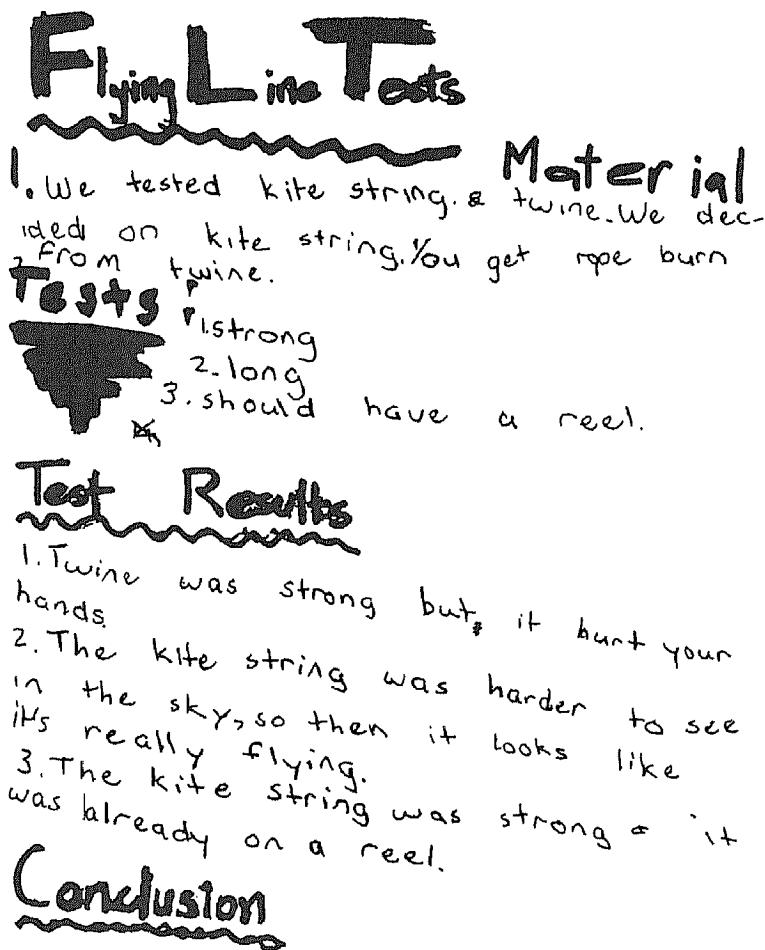 Flying Line Tests
Material
1. We tested kite string. & twine. We dec-
ided on kite string. You get rope burn
from twine.
Tests
1. strong
2. long
3. should have a reel.
Test Results
1. Twine was strong but, it burt your
hands.
2. The kite string was harder to see
in the sky, so then it looks like
it's really flying.
3. The kite string was strong & it
was already on a reel.
Conclusion